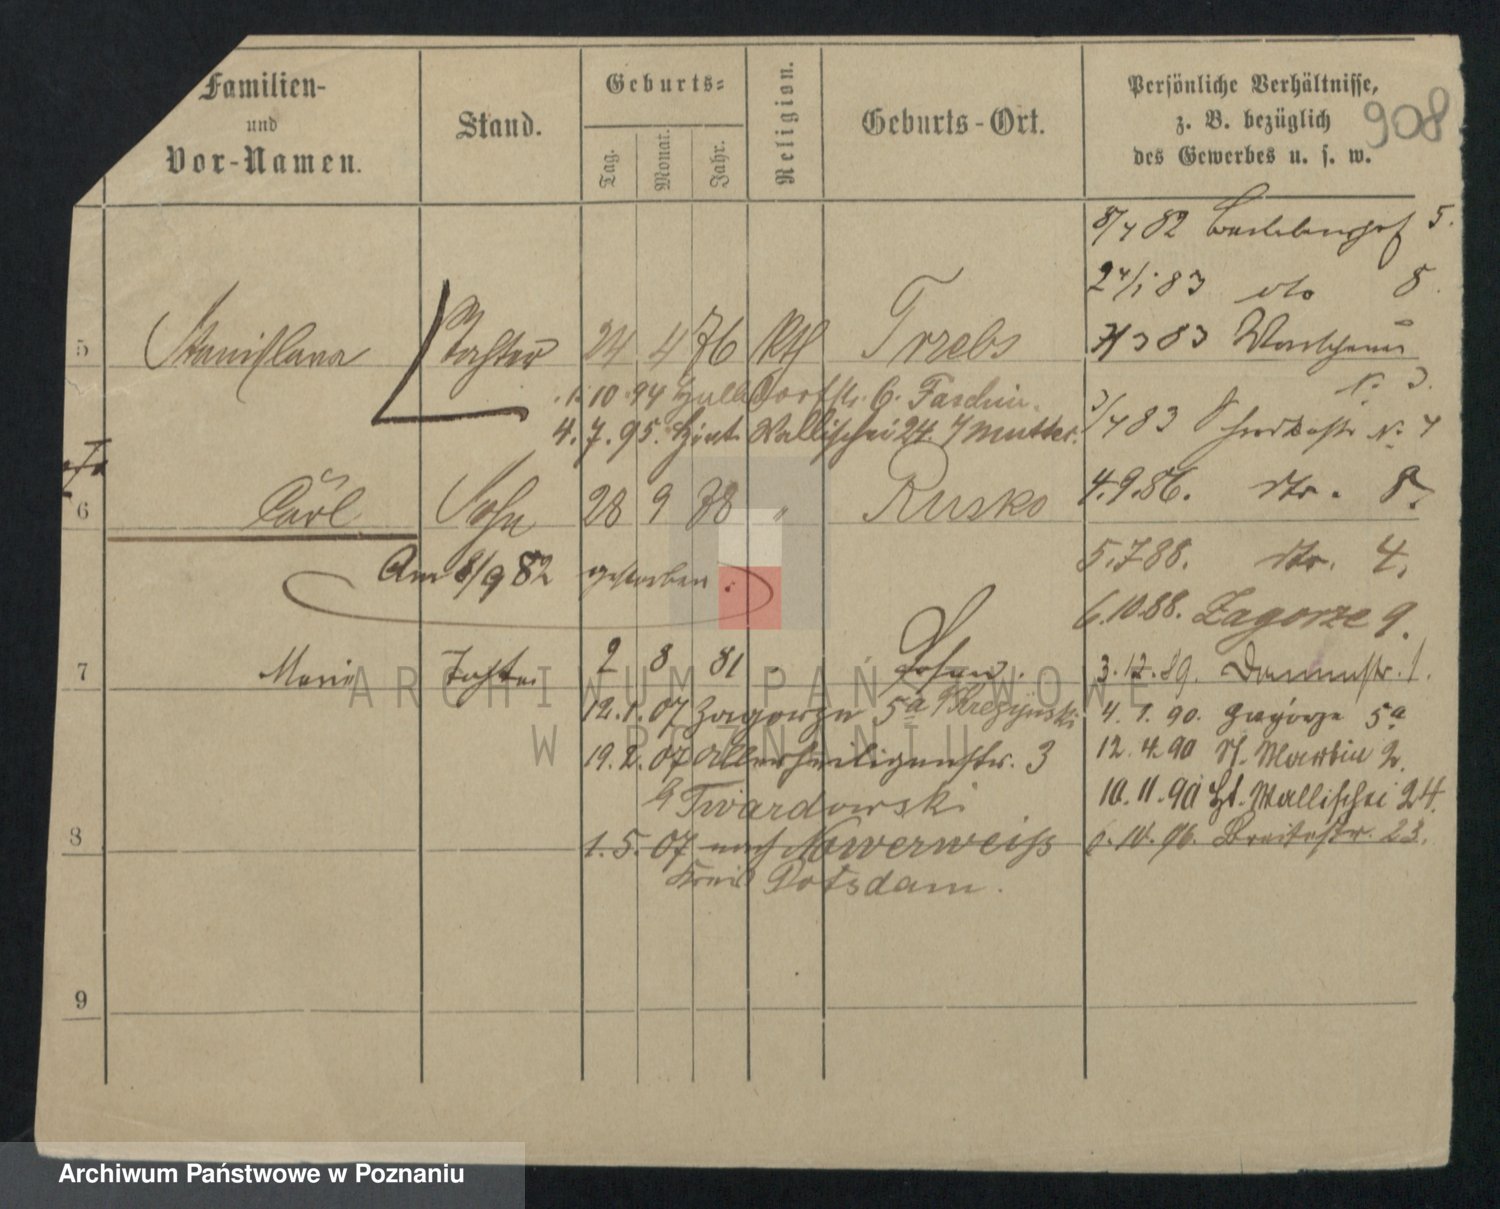 Familien-
und
Vor-Namen.
Stand.
Geburts-
Tag.
Monat.
Jahr.
Religion.
Geburts-Ort.
Persönliche Verhältnisse,
z. B. bezüglich
des Gewerbes u. s. w.
908
8/4 82 5.
24/1 83 dto 8.
5 Stanislawa Tochter 24 4 76 Kth Trzebs
83
N. 3.
1.10.94 Halbdorfstr. 6.
4.7.95. Hint. Wallischei 24. Mutter.
83 N. 4
6 Carl Sohn 28 9 78 " Rusko
4.9.86. dto. 8.
Am 8/9 82 gestorben.
5.7.88. dto. 4.
6.10.88. Zagorze 9.
7 Marie Tochter 2 8 81 Posen.
3.12.89. Dammstr. 1.
12.1.07 Zagorze 5a
4.1.90. Zagórze 5a
19.2.07 Allerheiligenstr. 3
12.4.90 St. Martin 2.
b/ Twardowski
10.11.90 Ht. Wallischei 24.
8
1.5.07 nach Nowerweiss
6.10.96. Breitestr. 23.
Kreis Potsdam.
9
ARCHIWUM PAŃSTWOWE
W POZNANIU
Archiwum Państwowe w Poznaniu